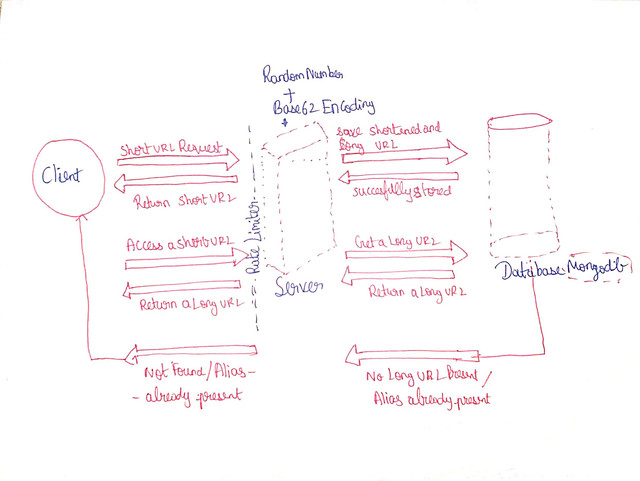 Random Number
+
Base62 Encoding
Short URL Request
save shortened and
Long URL
Client
Return Short URL
succesfully stored
Rate Limiter
Access a short URL
Get a Long URL
Server
Database: Mongodb
Return a Long URL
Return a Long URL
Not Found/Alias-
- already present
No Long URL Present/
Alias already present